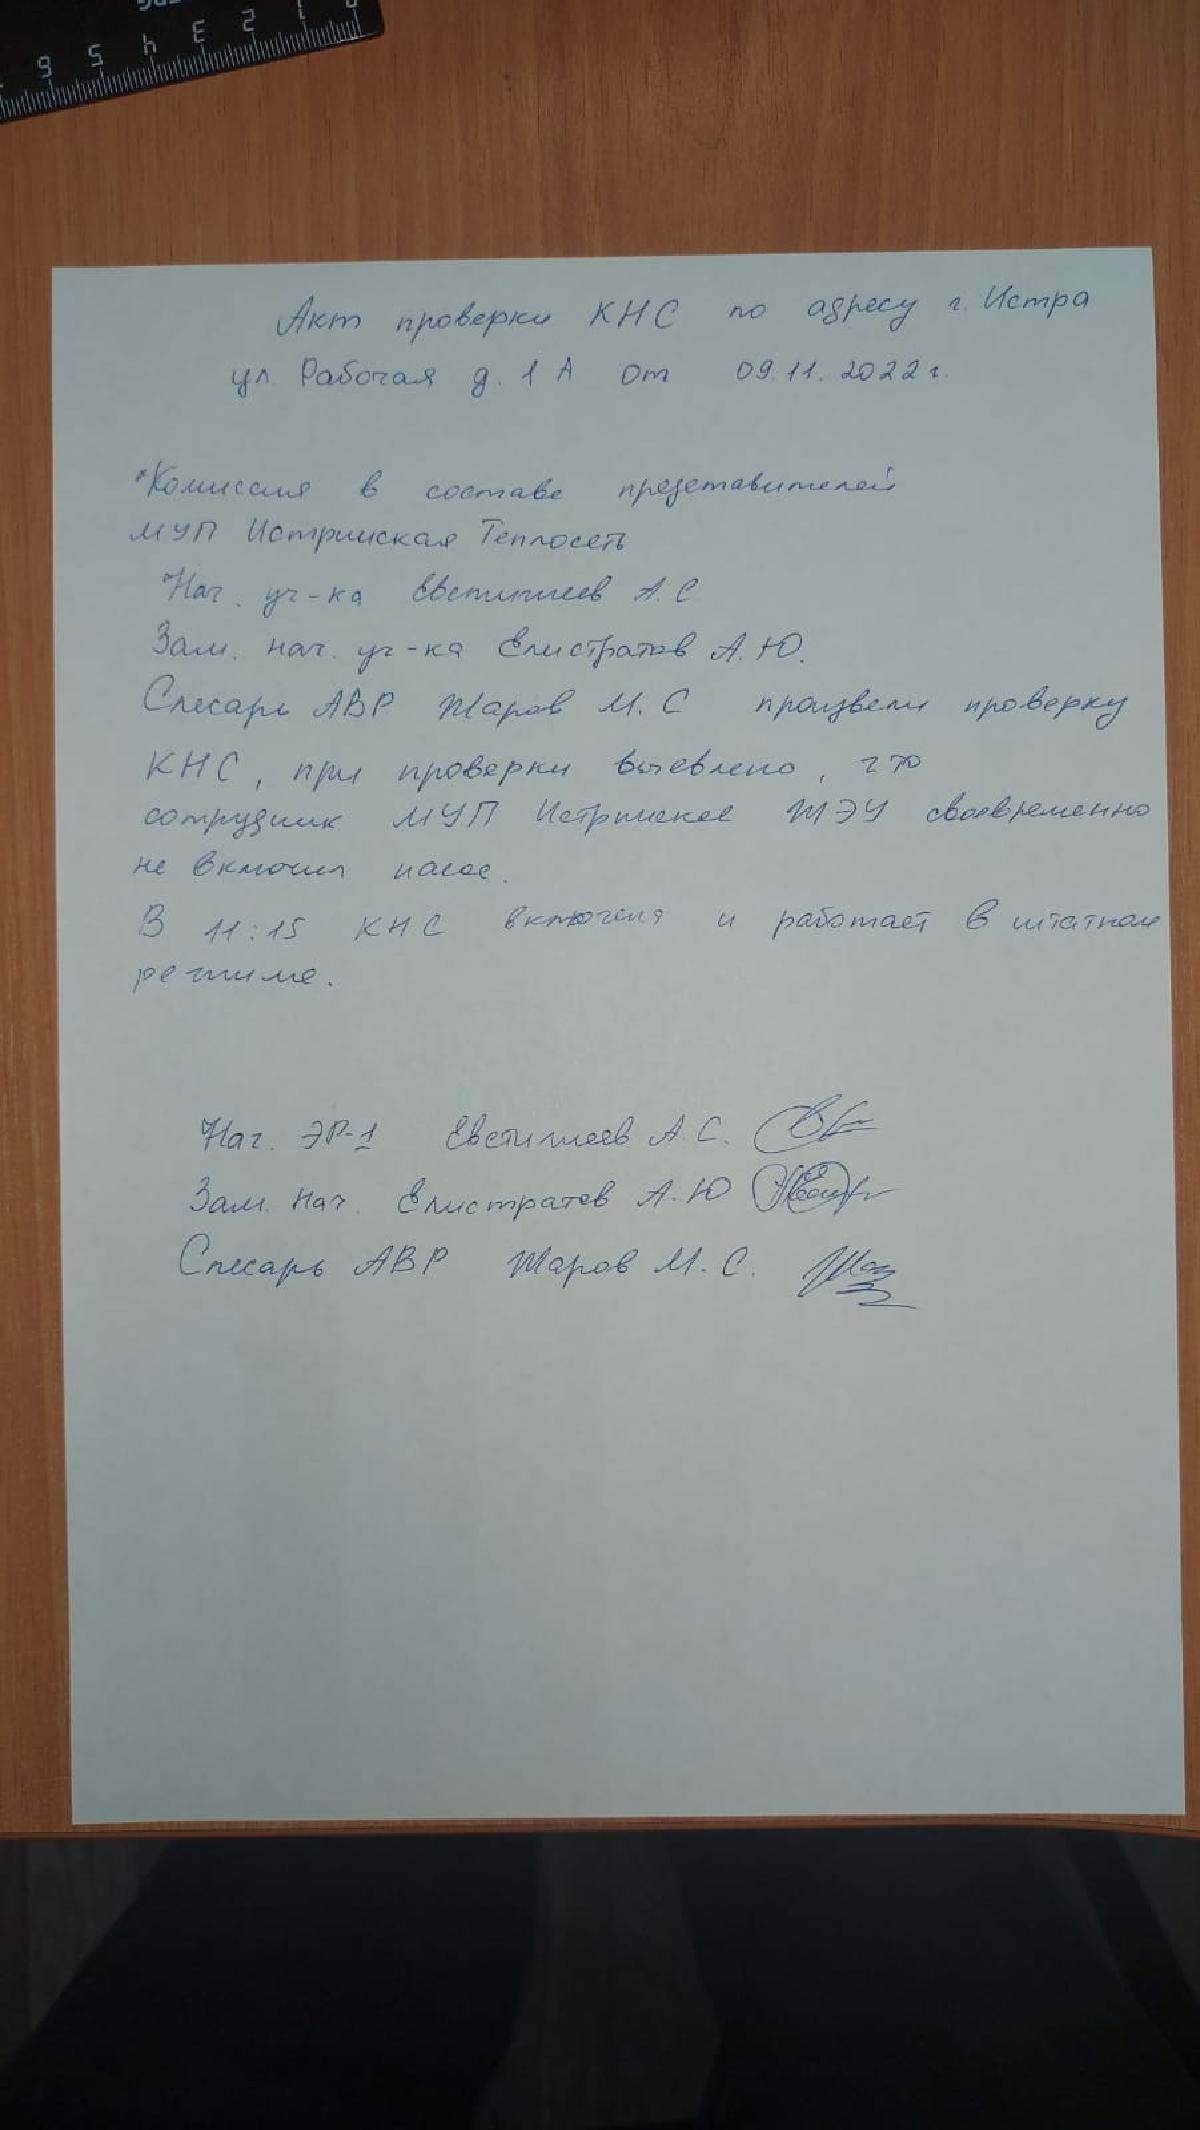 1 2 3 4 5 6
Акт проверки КНС по адресу г. Истра
ул. Рабочая д. 1 А от 09.11.2022 г.
Комиссия в составе представителей
МУП Истринская Теплосеть
Нач. уч-ка Евстигнеев А.С
Зам. нач. уч-ка Елистратов А.Ю.
Слесарь АВР Жаров М.С произвели проверку
КНС, при проверки выевлено, что
сотрудник МУП Истринское ЖЭУ своевременно
не включил насос.
В 11:15 КНС включена и работает в штатном
режиме.
Нач. ЭР-1 Евстигнеев А.С.
Зам. нач. Елистратов А.Ю
Слесарь АВР Жаров М.С.